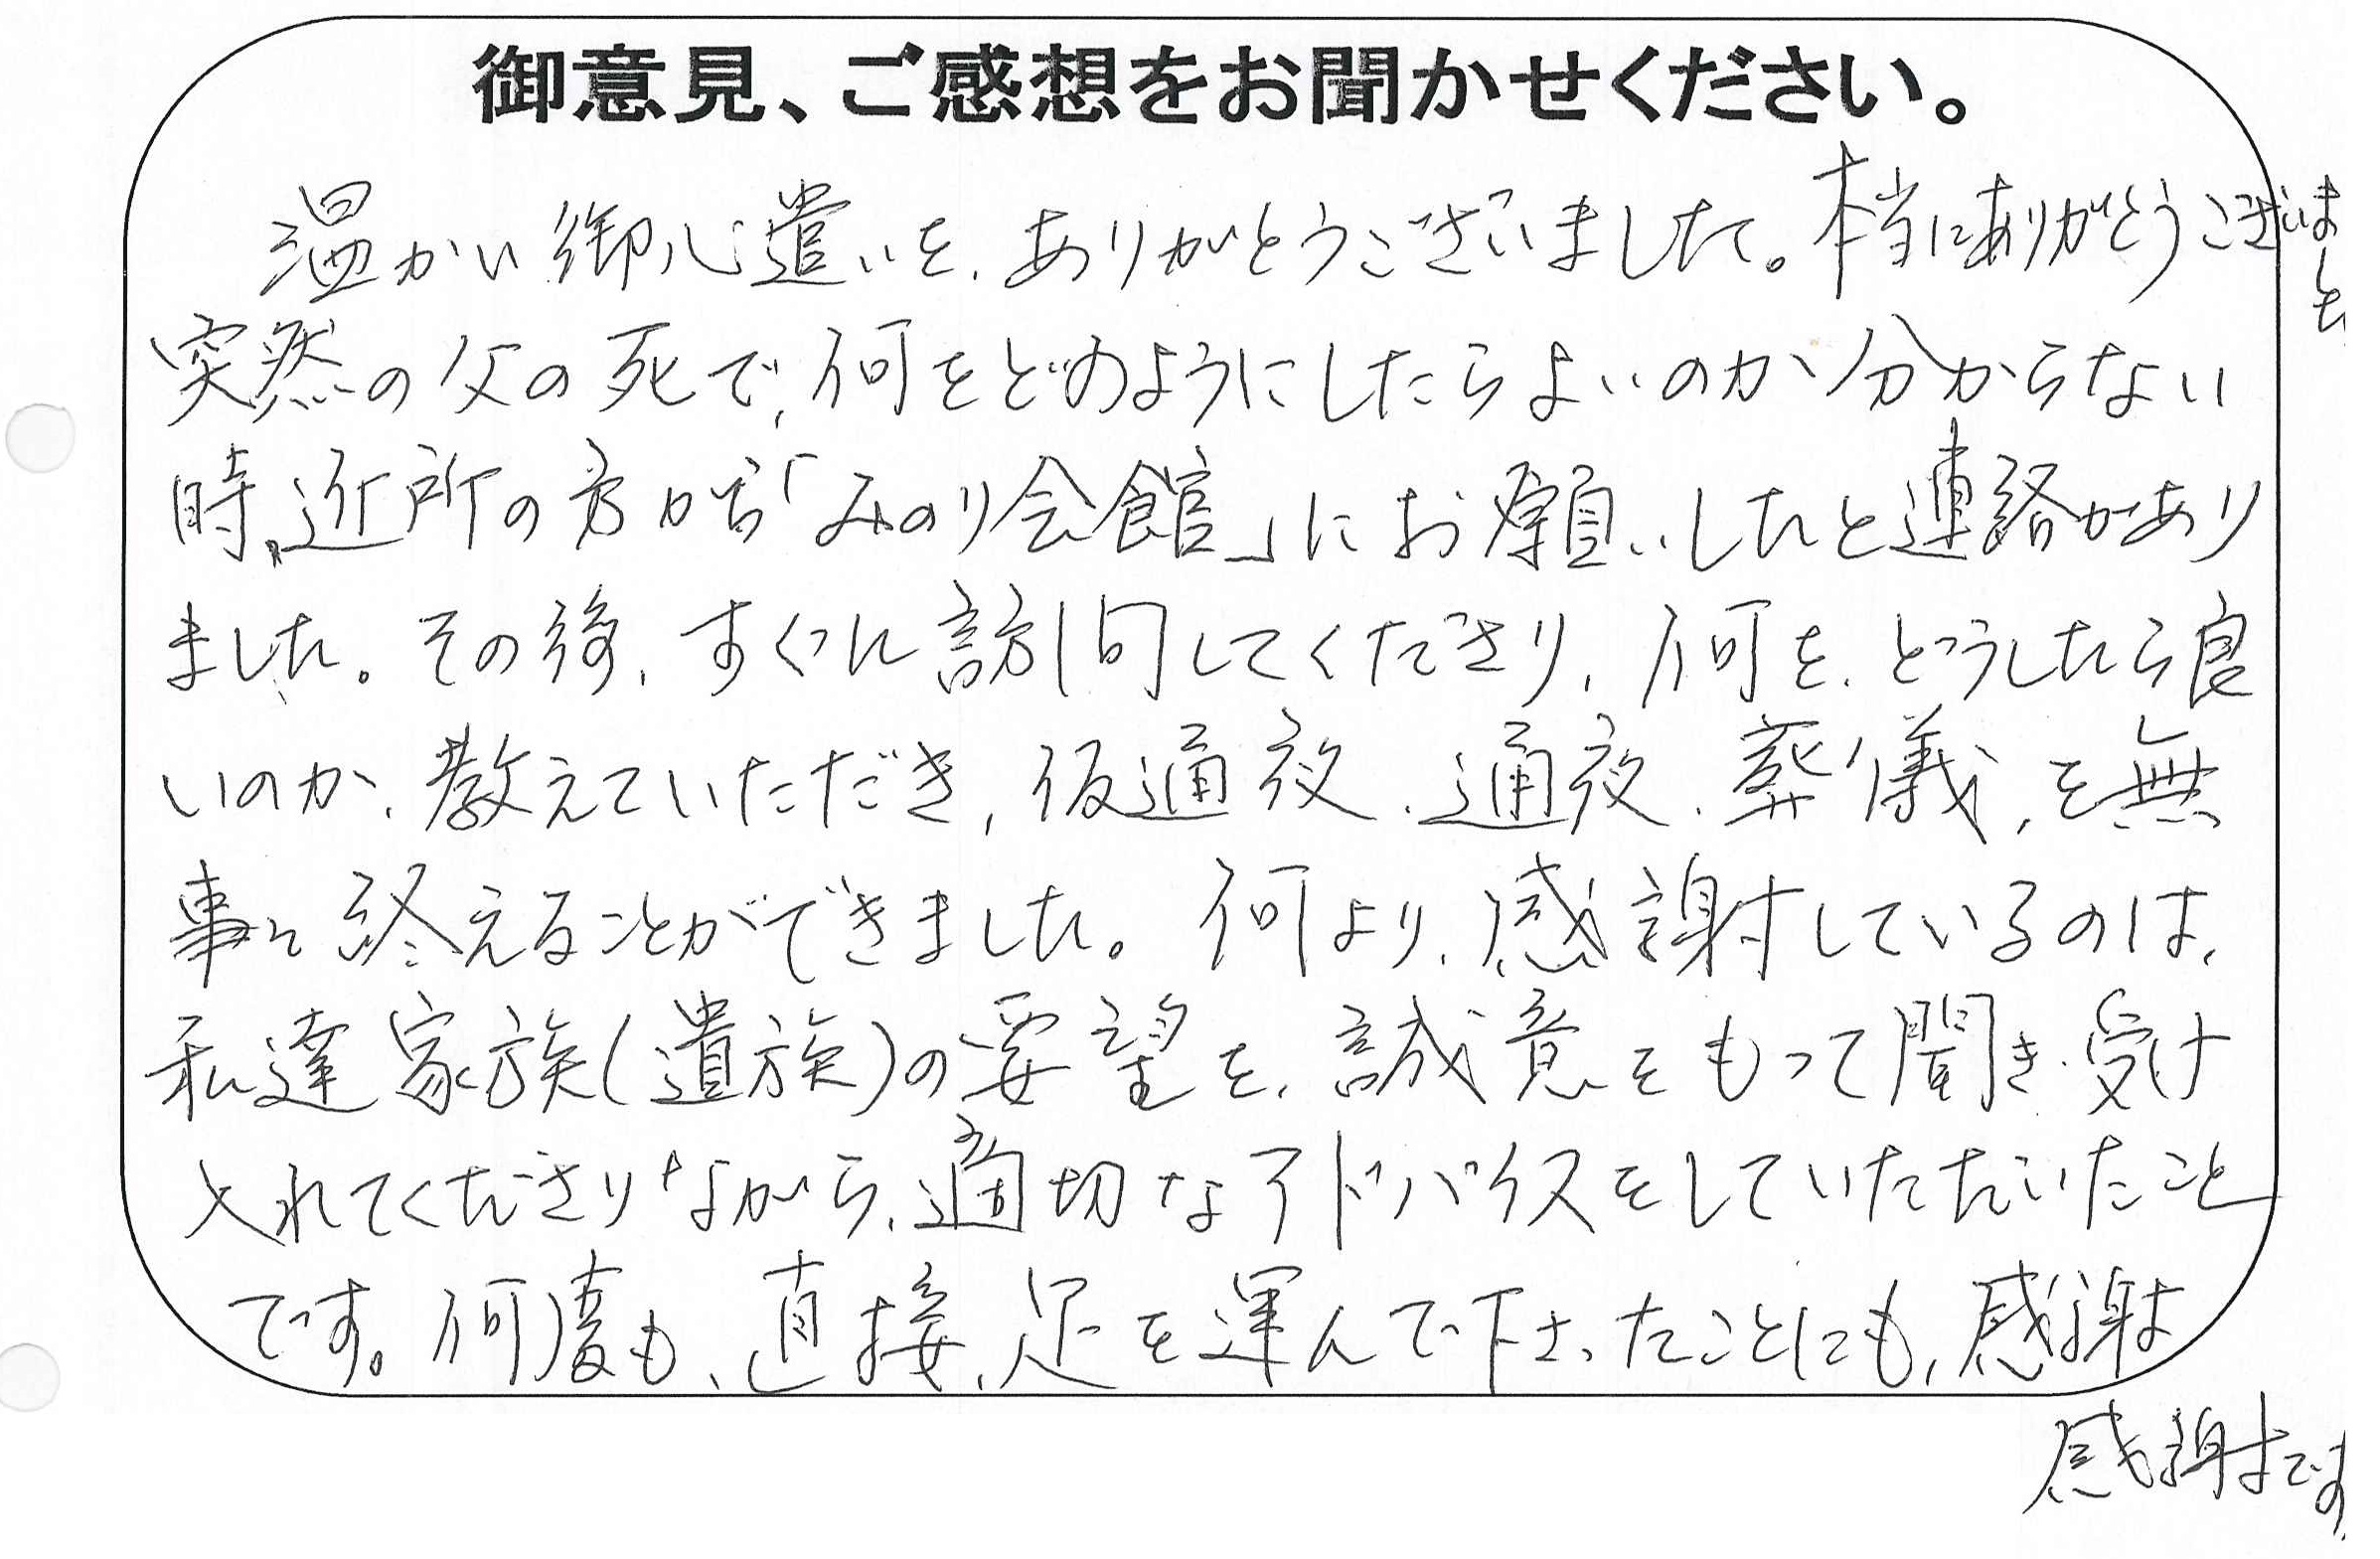 御意見、ご感想をお聞かせください。
温かい御心遣いを、ありがとうございました。本当にありがとうございました
突然の父の死で、何をどのようにしたらよいのか分からない
時、近所の方から「みのり会館」にお願いしたと連絡があり
ました。その後、すぐに訪問してくださり、何を、どうしたら良
いのか、教えていただき、仮通夜、通夜、葬儀、を無
事に終えることができました。何より、感謝しているのは、
私達家族(遺族)の要望を、誠意をもって聞き、受け
入れてくださりながら、適切なアドバイスをしていただいたこと
です。何度も、直接、足を運んで下さったことにも、感謝
感謝です。